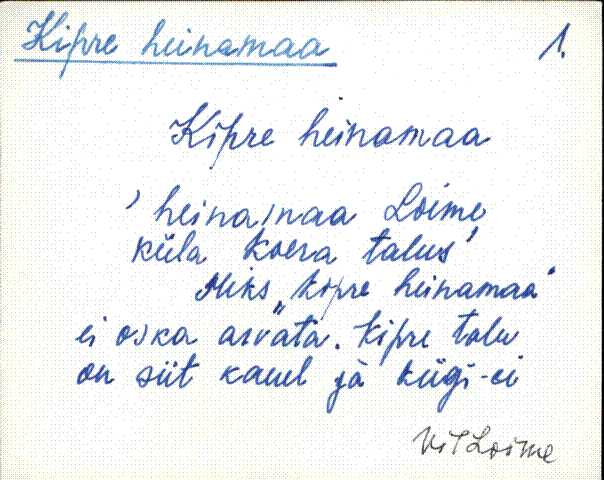 Kipre heinamaa 1.
Kipre heinamaa
' heinamaa Loime
küla Koera talus'
Miks „Kipre heinamaa"
ei oska arvata. Kipre talu
on siit kauel ja kiigi-ei
Vil Loime